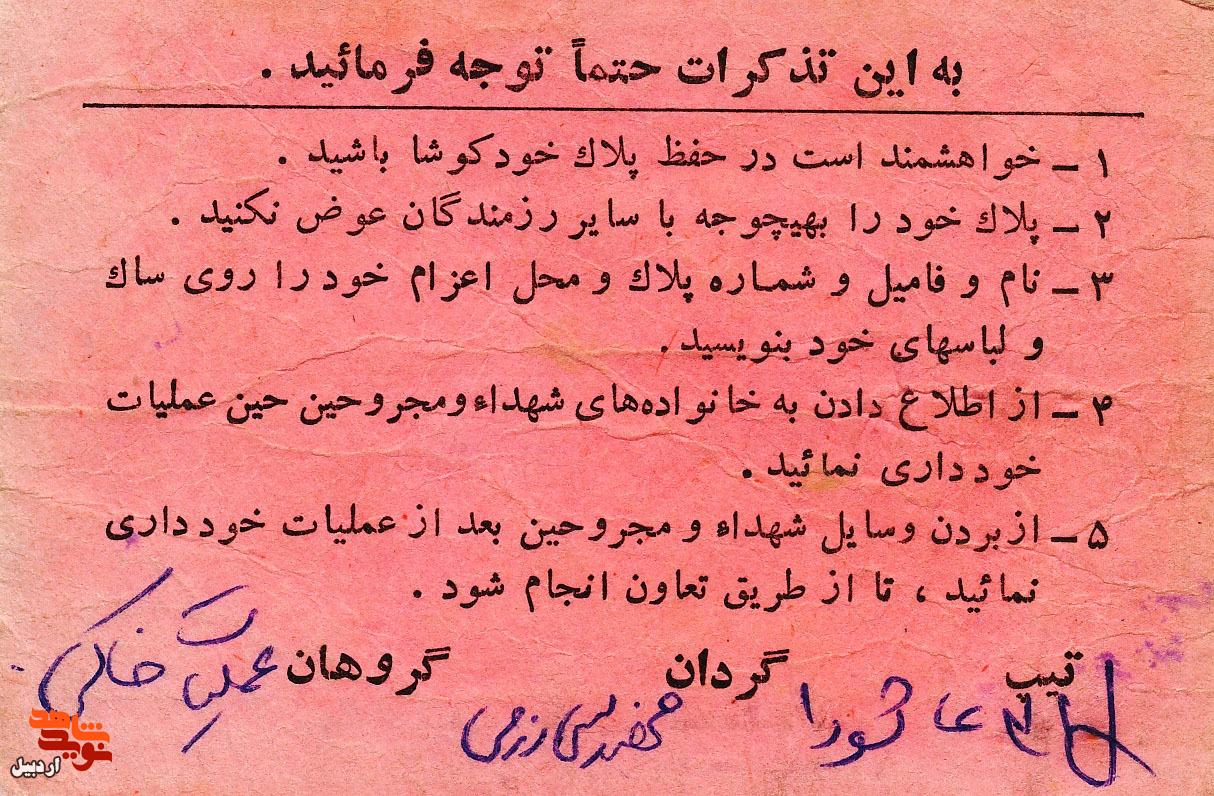 به این تذکرات حتماً توجه فرمائید.
۱ ــ خواهشمند است در حفظ پلاك خود کوشا باشید.
۲ ــ پلاك خود را بهیچوجه با سایر رزمندگان عوض نکنید.
۳ ــ نام و فامیل و شماره پلاك و محل اعزام خود را روی ساك
و لباسهای خود بنویسید.
۴ ــ از اطلاع دادن به خانواده‌های شهداء و مجروحین حین عملیات
خودداری نمائید.
۵ ــ از بردن وسایل شهداء و مجروحین بعد از عملیات خودداری
نمائید، تا از طریق تعاون انجام شود.
تیپ گردان گروهان
عاشورا مهندسی رزمی عملیات خاکی
نوید شاهد
اردبیل